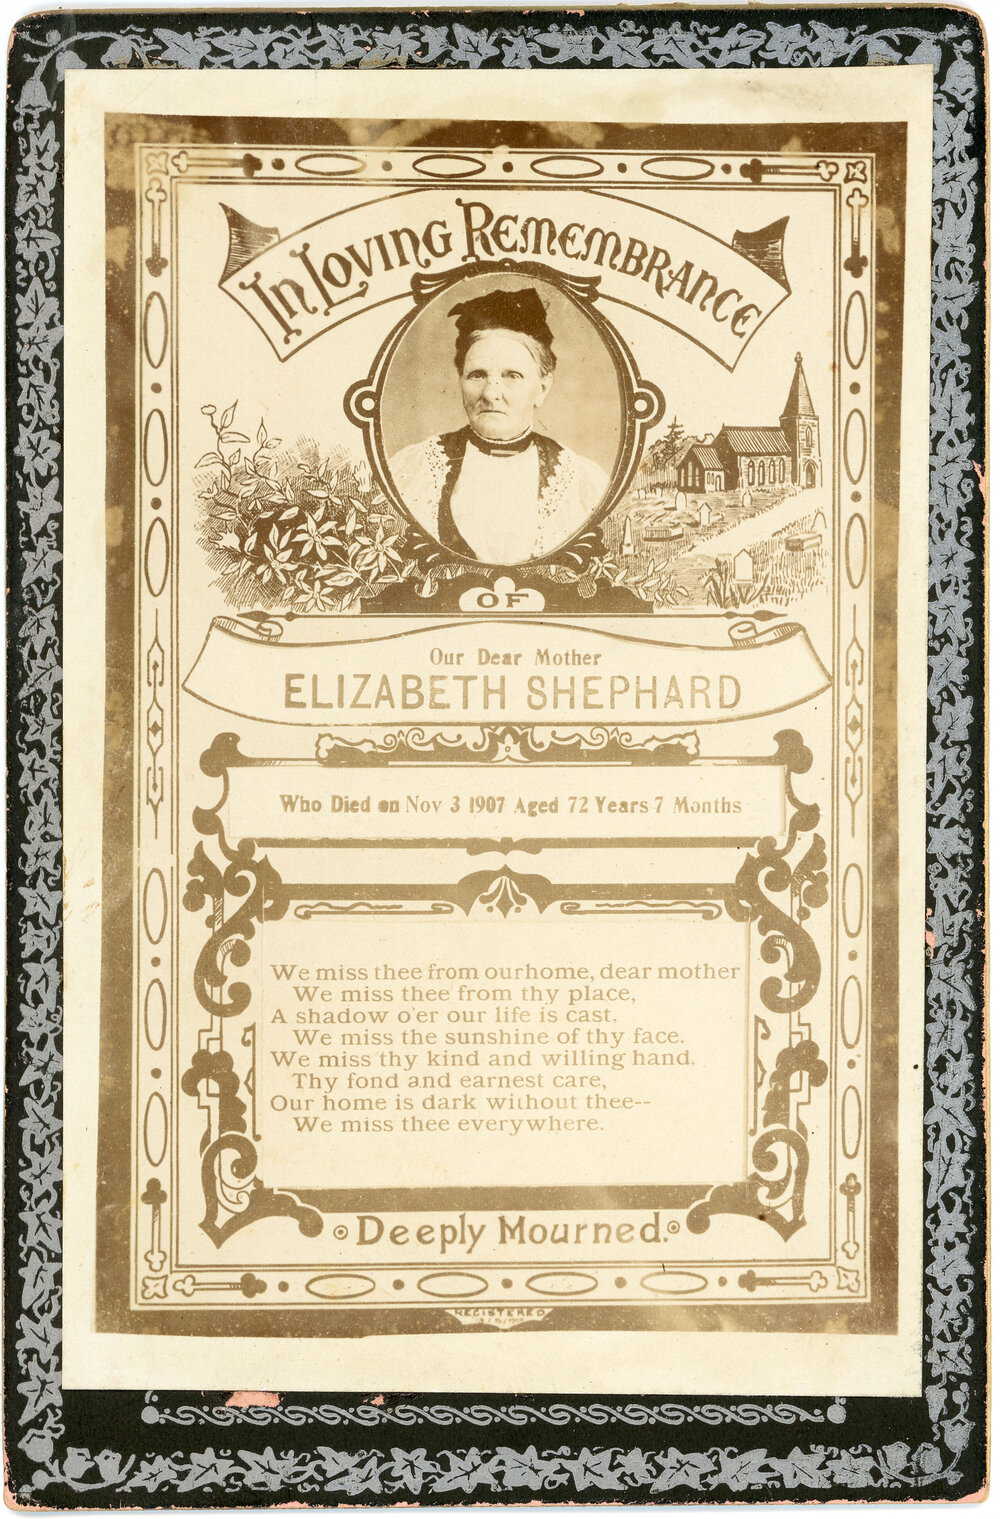 In Loving Remembrance
OF
Our Dear Mother
ELIZABETH SHEPHARD
Who Died on Nov 3 1907 Aged 72 Years 7 Months
We miss thee from our home, dear mother
We miss thee from thy place,
A shadow o'er our life is cast,
We miss the sunshine of thy face.
We miss thy kind and willing hand.
Thy fond and earnest care,
Our home is dark without thee--
We miss thee everywhere.
Deeply Mourned.
REGISTERED